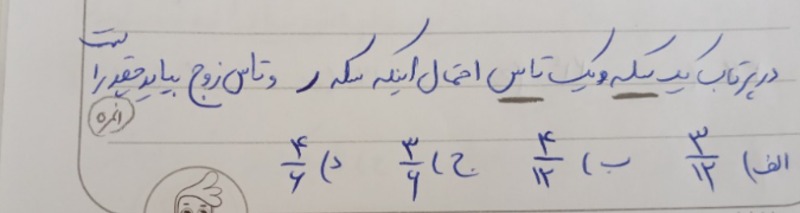 در پرتاب یک سکه و یک تاس احتمال اینکه سکه ر و تاس زوج بیاید چقدر است
الف) ۳/۱۲ ب) ۴/۱۲ ج) ۳/۶ د) ۴/۶